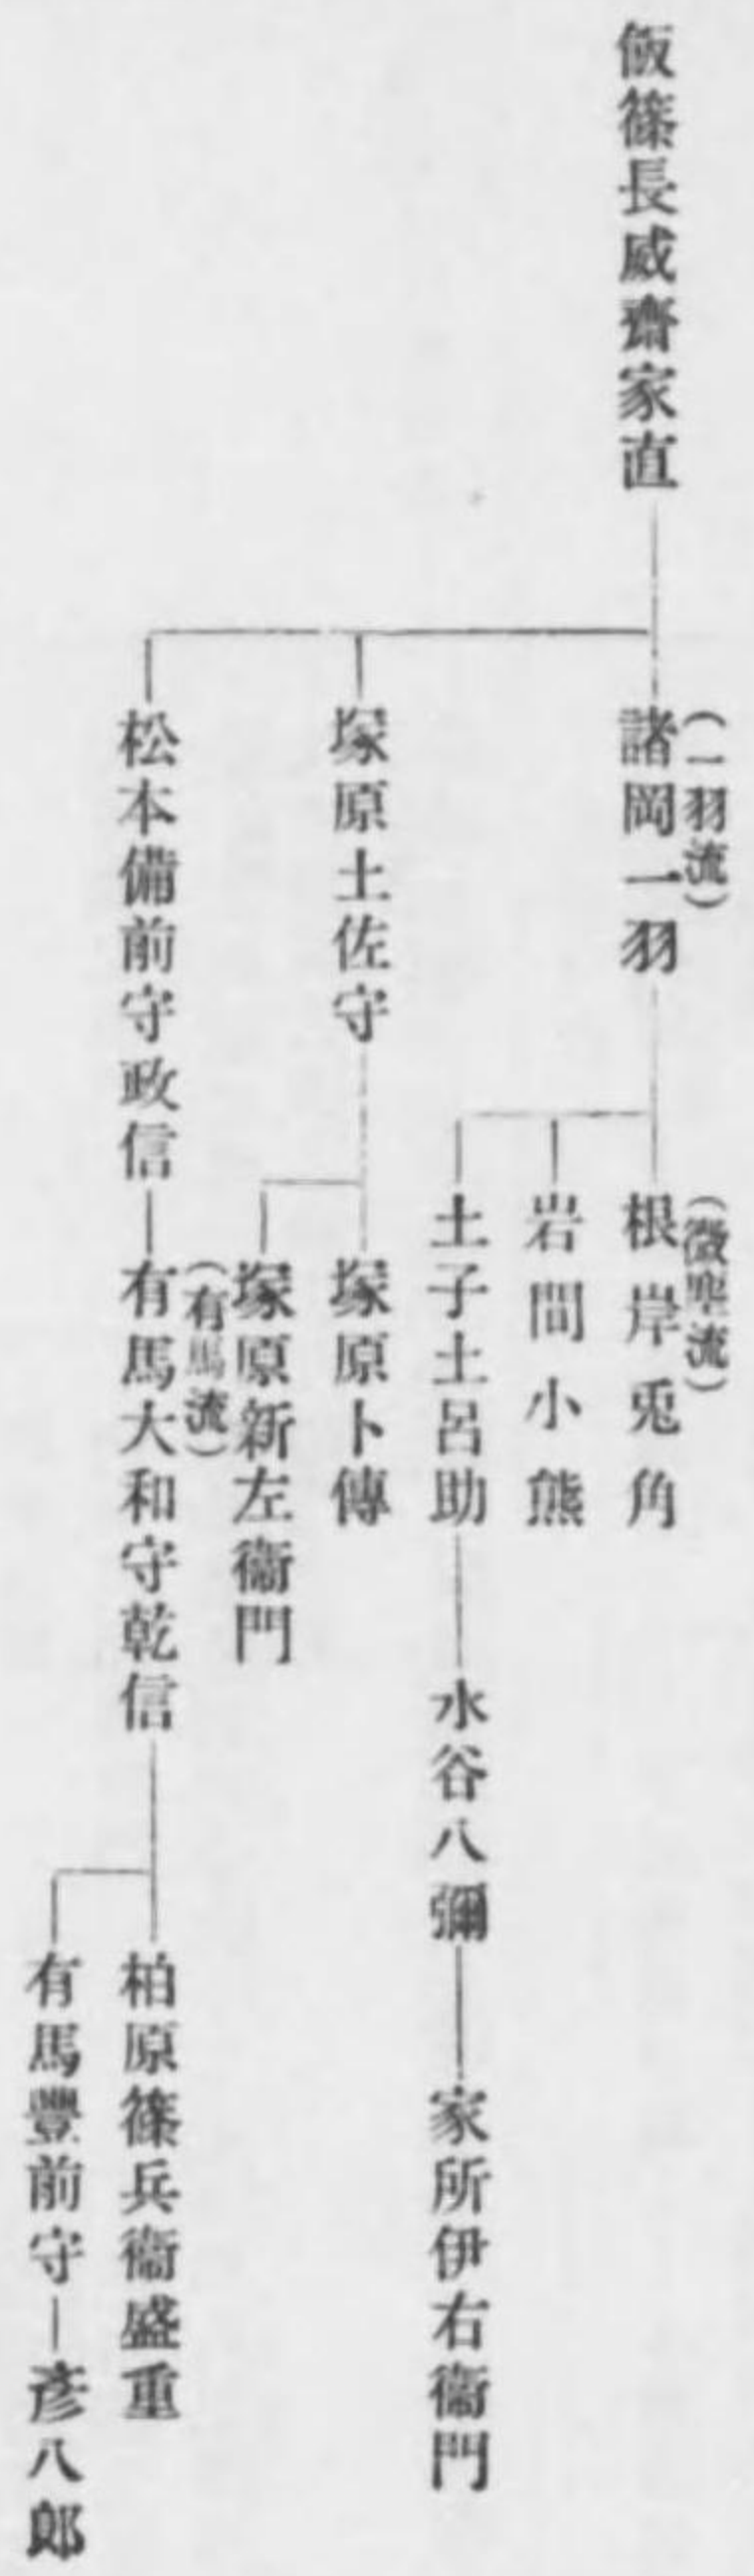 飯篠長威齋家直
(一羽流)
諸岡一羽
(微塵流)
根岸兎角
岩間小熊
土子土呂助
水谷八彌
家所伊右衞門
塚原土佐守
塚原卜傳
塚原新左衞門
松本備前守政信
(有馬流)
有馬大和守乾信
柏原篠兵衞盛重
有馬豐前守
彥八郎